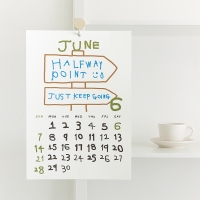 JUNE
HALFWAY
POINT
JUST KEEP GOING
6
SUN MON TUE WED THU FRI SAT
1 2 3 4 5 6
7 8 9 10 11 12 13
14 15 16 17 18 19 20
21 22 23 24 25 26 27
28 29 30